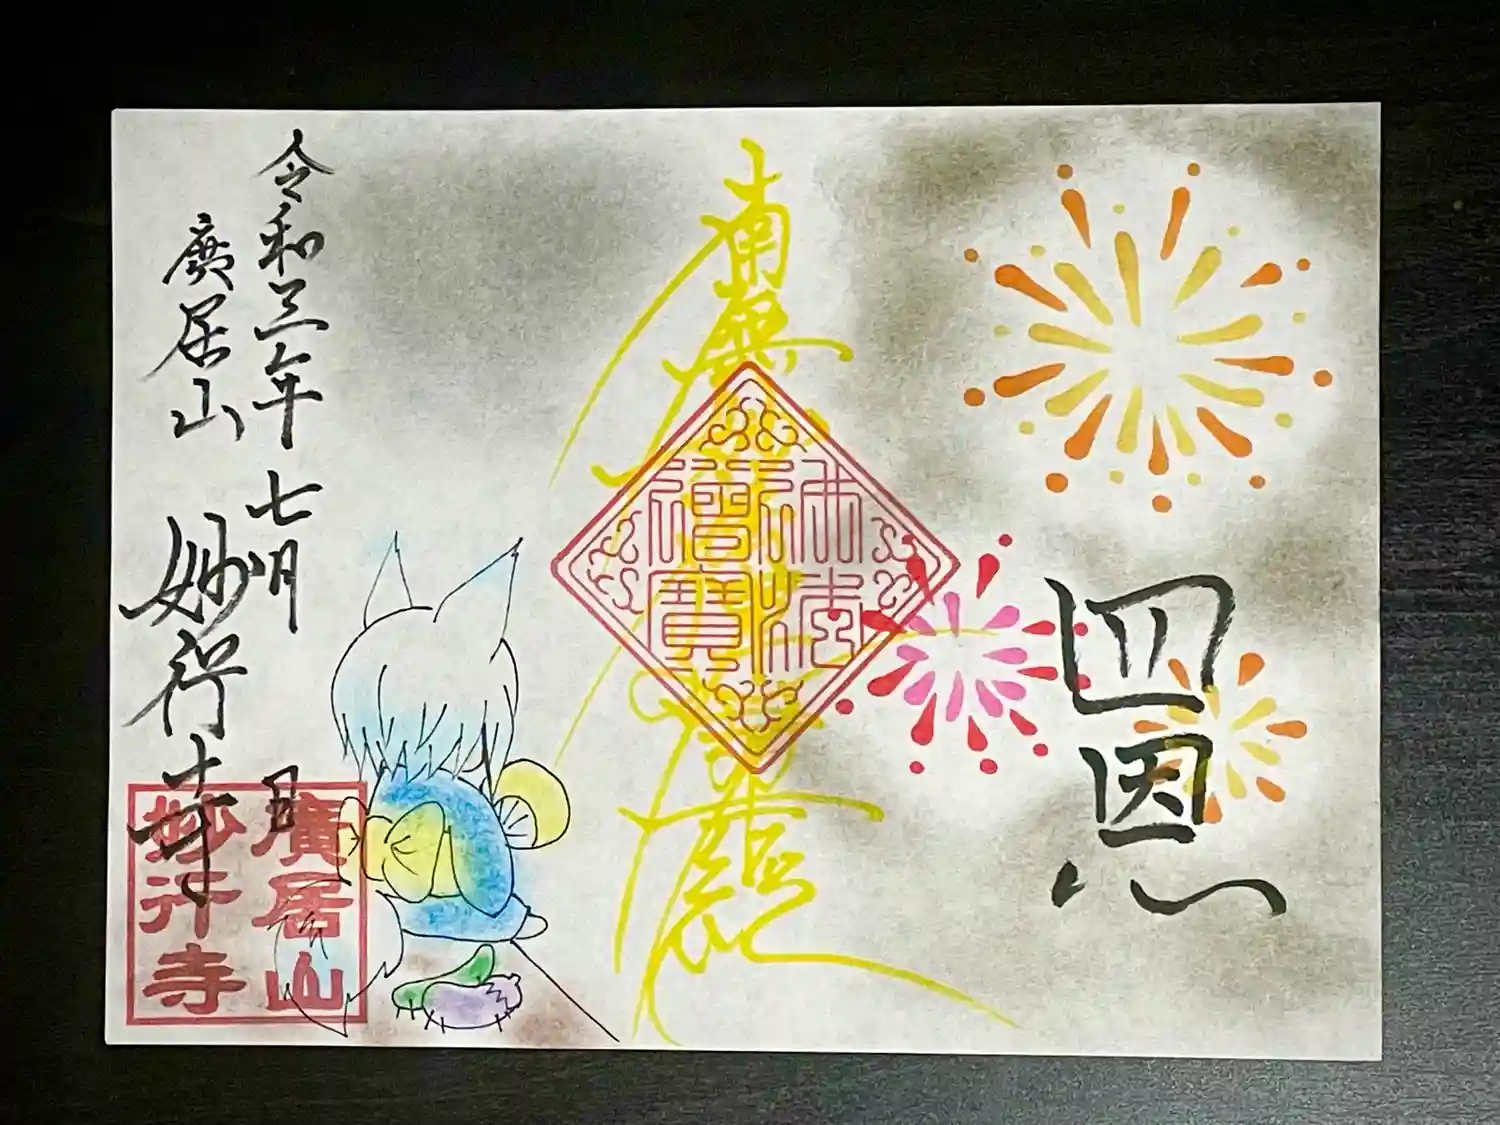 四恩
南無
佛法僧寶
令和三年七月 日
廣居山
妙行寺
廣居山
妙行寺